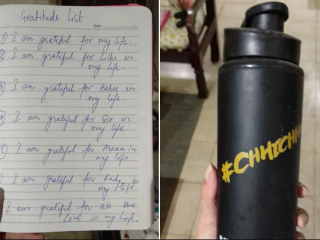 Gratitude List
Date
1) I am grateful for my life.
I am grateful for
in
my life.
I am grateful for
in
my life
I am grateful for Sir in
my life
I am grateful for
in
my life
I am grateful for
in
my life
I am grateful for all the
Love in my life.
#CHHICHH